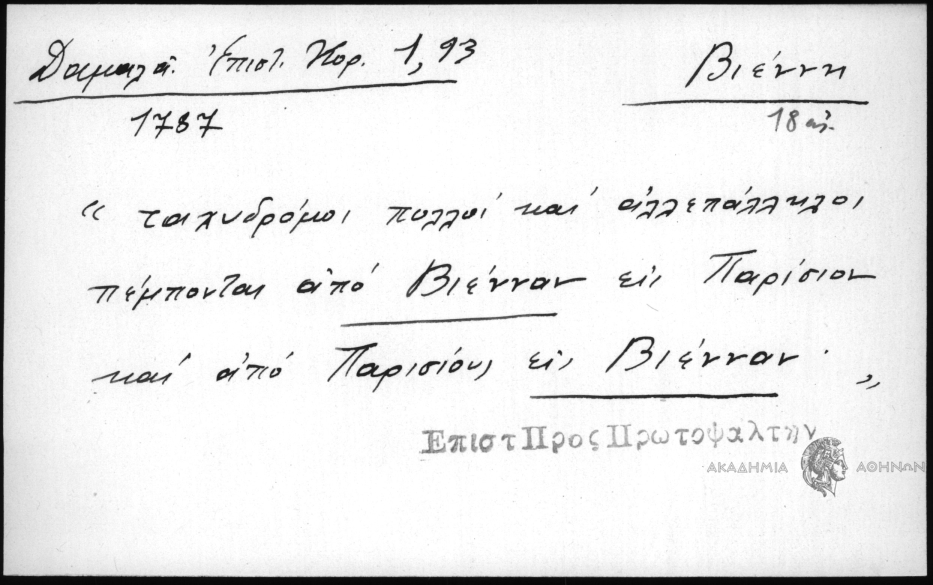 Δαμαλᾶ. Ἐπιστ. Κορ. 1, 93
Βιέννη
1787
18 αἰ.
“ ταχυδρόμοι πολλοί καί ἀλλεπάλληλοι
πέμπονται ἀπό Βιένναν εἰς Παρίσιον
καί ἀπό Παρισίους εἰς Βιένναν. „
Επιστ Προς Πρωτοψαλτην
ΑΚΑΔΗΜΙΑ ΑΘΗΝΩΝ